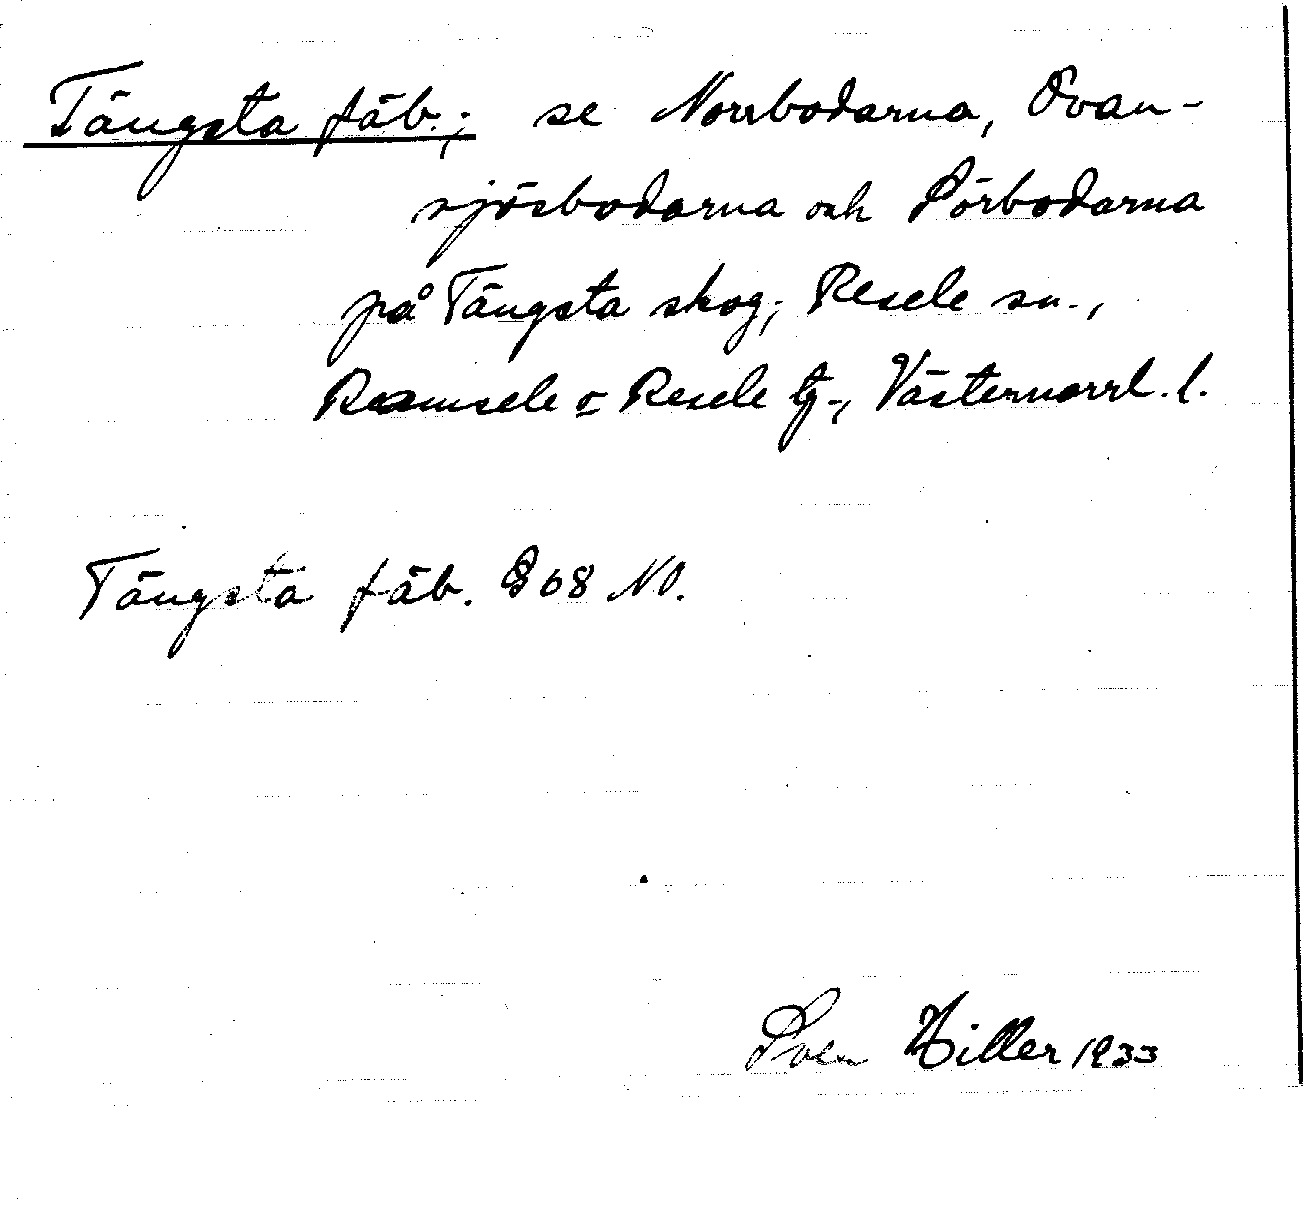 Tängsta fäb.; se Norrbodarna, Ovan-
sjösbodarna och Sörbodarna
på Tängsta skog, Resele sn.,
Ramsele o Resele tg., Västernorrl. l.
Tängsta fäb. § 68 NO.
Sven Hiller 1933